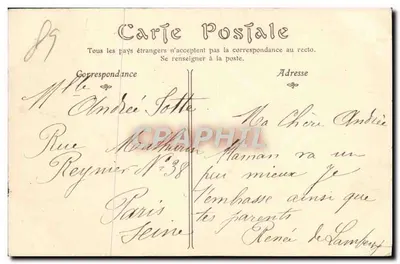 89
Carte Postale
Tous les pays étrangers n'acceptent pas la correspondance au recto.
Se renseigner à la poste.
Correspondance
Adresse
Mlle
Andrée Sotte
Rue
Reynier No 38
Paris
Seine
Ma chère Andrée
Maman va un
peu mieux Je
t'embrasse ainsi que
tes parents
Renée de
CPAPHIL